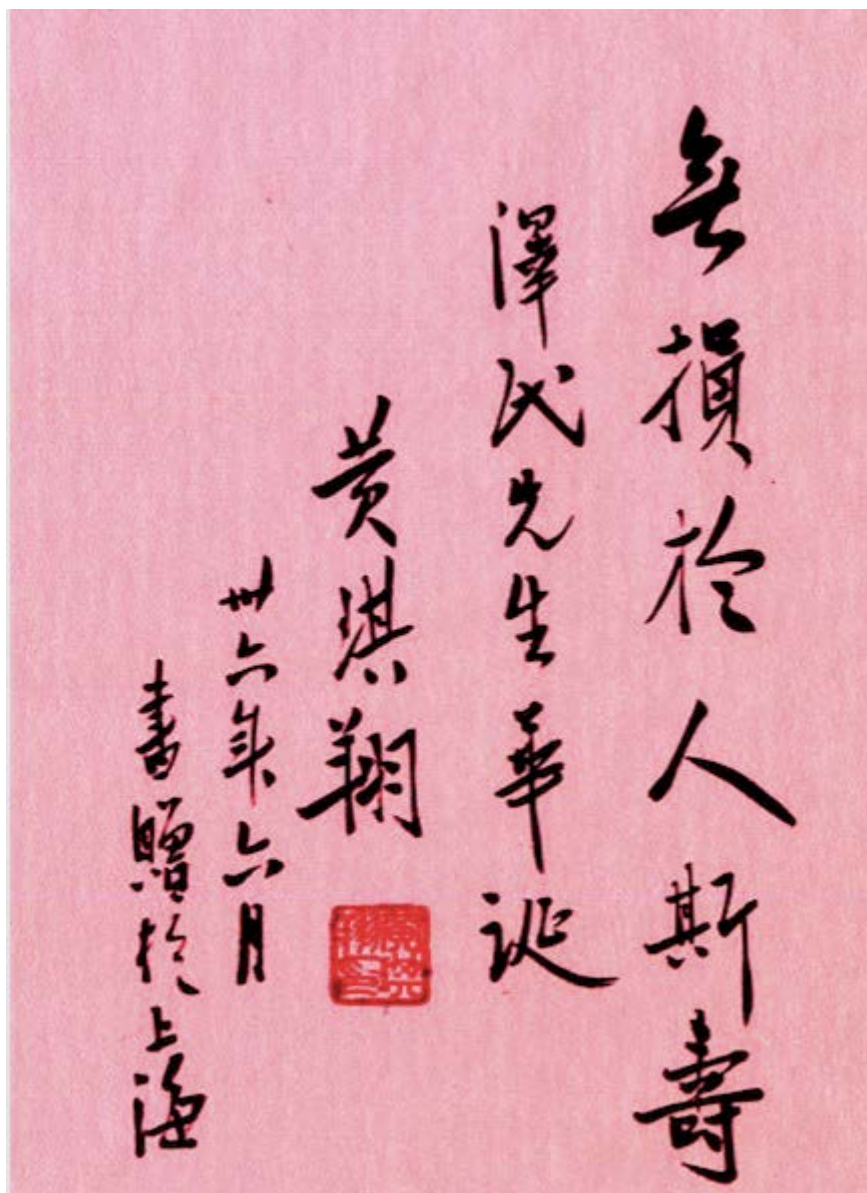 無損於人斯壽
澤民先生華誕
黄琪翔
卅六年六月
書贈於上海